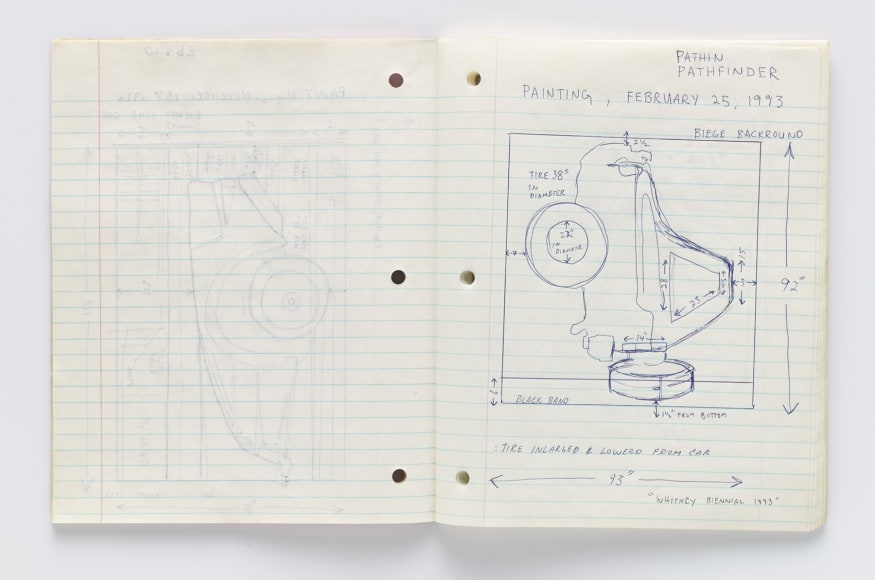 PATHIN
PATHFINDER
PAINTING, FEBRUARY 25, 1993
BIEGE BACKROUND
2½
TIRE 38"
IN
DIAMETER
22"
IN
DIAMEER
7
28
23
15
3
92"
14"
6
BLACK BAND
1½" FROM BOTTOM
: TIRE INLARGED & LOWERD FROM CAR
93"
"WHITNEY BIENNIAL 1993"